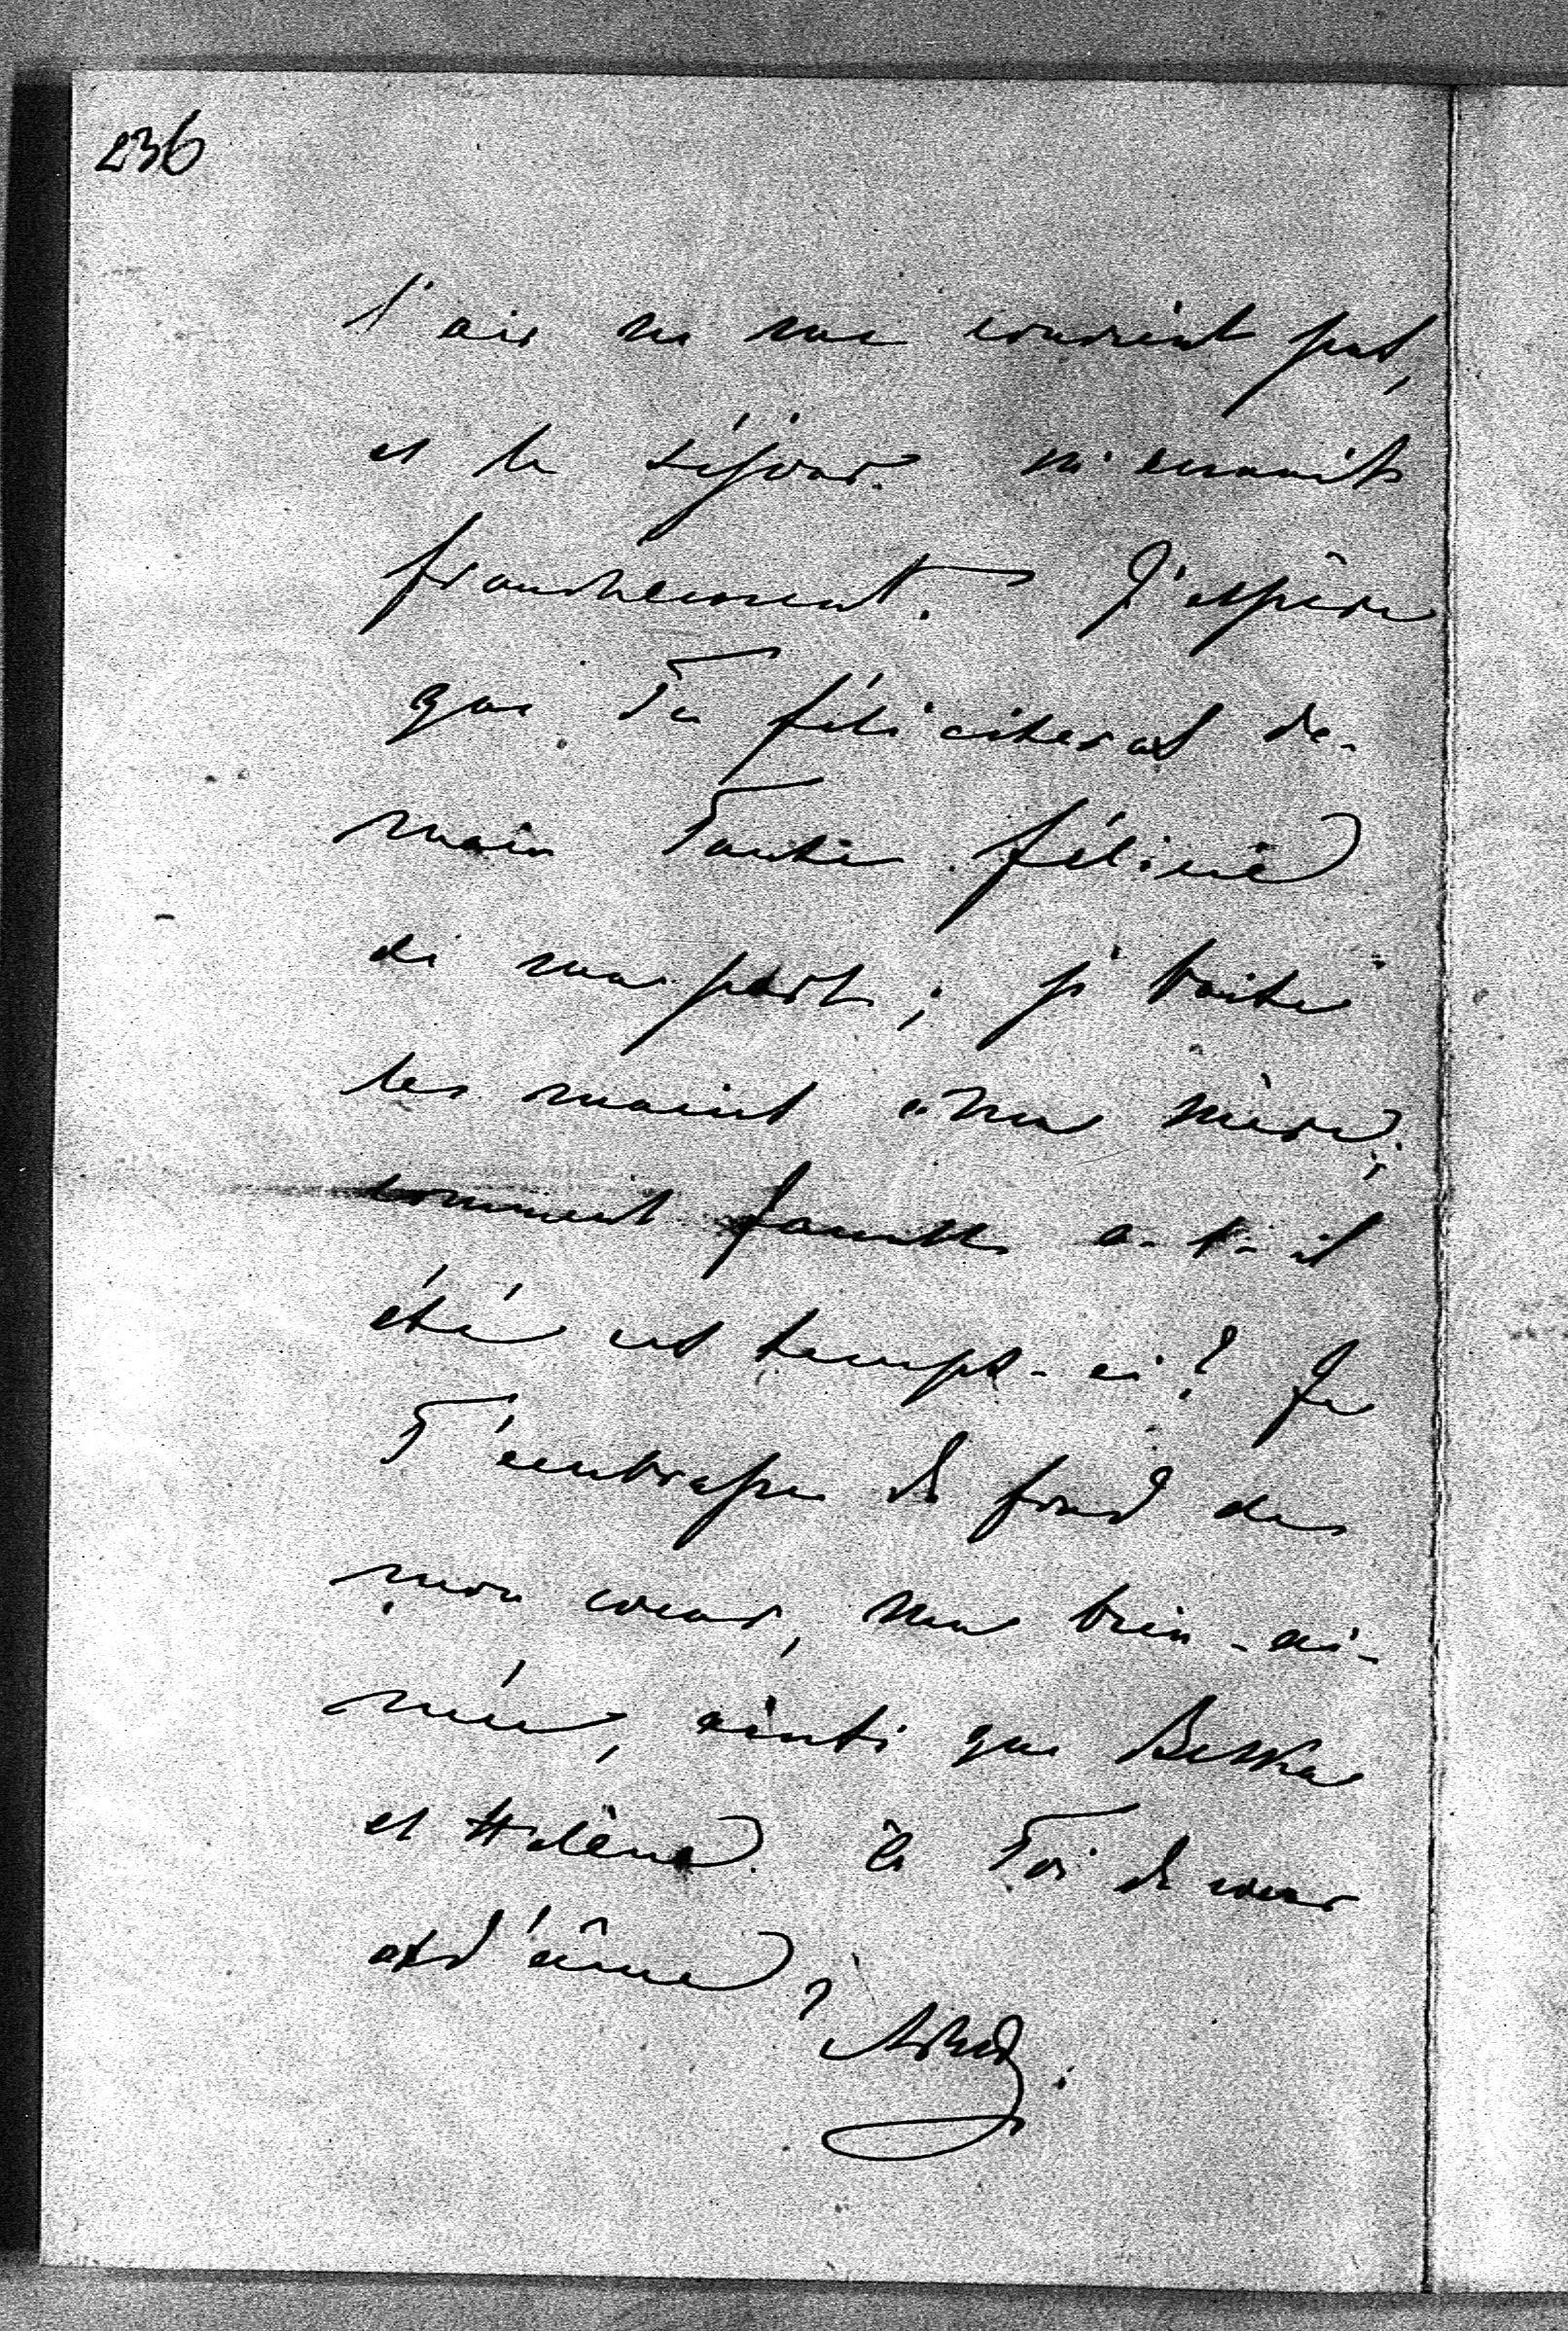 236
l'air ne me convient pas,
et le séjour m'ennuie
franchement. J'espère
que Tu féliciteras de-
main Tante Félicie
de ma part; je baise
les mains à Ma mère;
comment a-t-il
été ces temps-ci? Je
T'embrasse du fond de
mon coeur, ma bien-ai-
mée, ainsi que
et Hélène. à Toi de coeur
et d'âme,